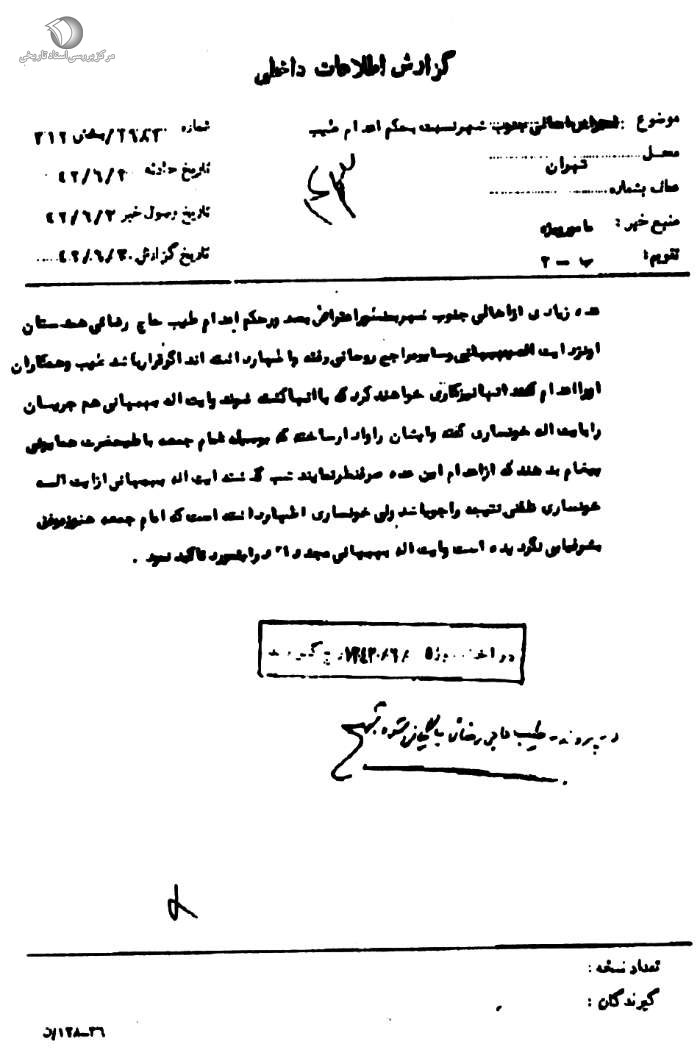 مرکز بررسی اسناد تاریخی
گزارش اطلاعات داخلی
موضوع : اهالی جنوب شهر نسبت بحکم اعدام طیب
محـل تهران
عطف بشماره
منبع خبر :
تقویم: ب – ۲
شماره ۲۹۸۸۳/ بخش ۳۱۲
تاریخ حادثه ۴۲/۶/۲
تاریخ وصول خبر ۴۲/۶/۲
تاریخ گزارش ۴۲/۶/۳۰
عده زیادی ازاهالی جنوب شهر اعتراض بصدورحکم اعدام طیب حاج رضائی هدستان
اونزد ایت الله بهبهانی وسایر مراجع روحانی رفته و اظهارداشته انداگرقرارباشد طیب وهمکاران
اورااعدام کنند انهانیزکاری خواهندکردکه باانهاکشته شوند وایت اله بهبهانی هم جریان
رابایت اله خونساری گفته وایشان راوادارساخته که بوسیله امام جمعه باعلیحضرت همایونی
پیغام بدهند که ازاعدام این عده صرفنظرنمایند شب گذشته ایت اله بهبهانی ازایت اله
خونساری تلفنی نتیجه راجویاشد ولی خونساری اظهارداشته است که امام جمعه هنوزموفق
بشرفیابی نگردیده است وایت اله بهبهانی مجددا" دراینمورد تاکید نمود .
در پرونده طیب حاج رضائی بایگانی شود
تعداد نسخه :
گیرندگان :
۳۶–۱۲۸/ن